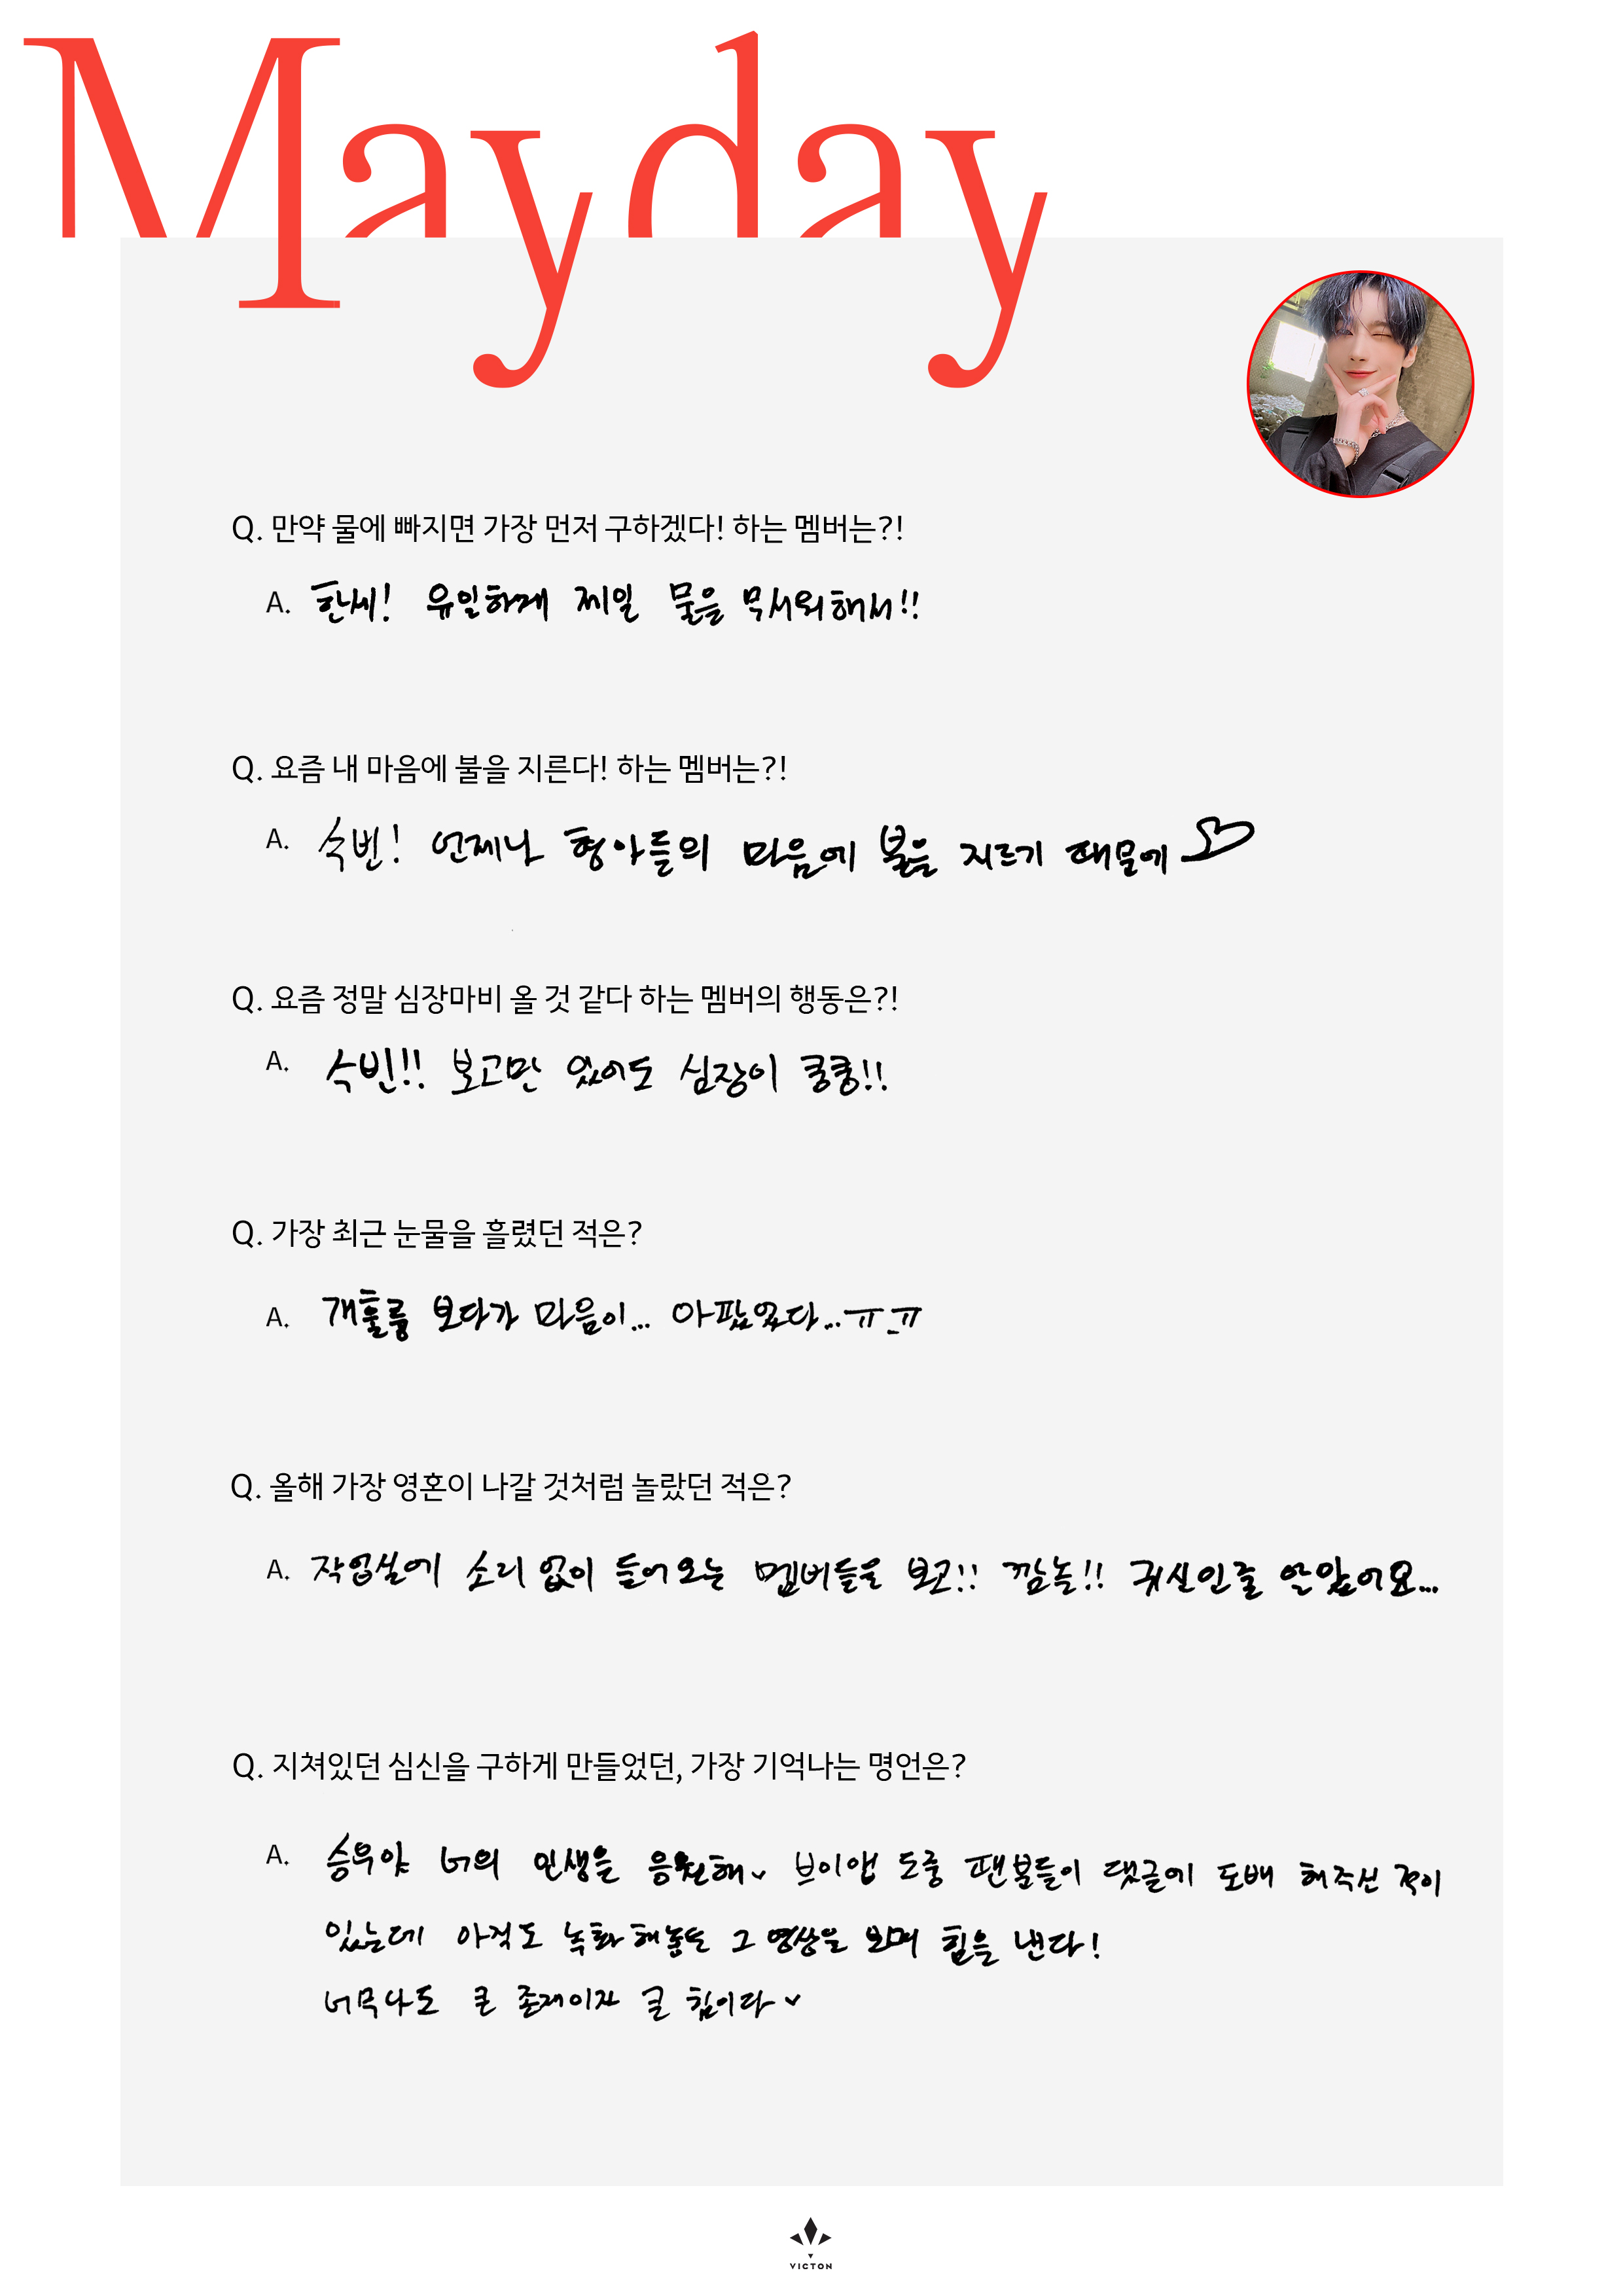 Mayday
Q. 만약 물에 빠지면 가장 먼저 구하겠다! 하는 멤버는?!
A. 한세! 유일하게 제일 물을 무서워해서!!
Q. 요즘 내 마음에 불을 지른다! 하는 멤버는?!
A. 수빈! 언제나 형아들의 마음에 불을 지르기 때문에
Q. 요즘 정말 심장마비 올 것 같다 하는 멤버의 행동은?!
A. 수빈!! 보고만 있어도 심장이 쿵쿵!!
Q. 가장 최근 눈물을 흘렸던 적은?
A. 개훌륭 보다가 마음이... 아팠었다...ㅠ_ㅠ
Q. 올해 가장 영혼이 나갈 것처럼 놀랐던 적은?
A. 작업실에 소리 없이 들어오는 멤버들을 보고!! 깜놀!! 귀신인줄 알았어요...
Q. 지쳐있던 심신을 구하게 만들었던, 가장 기억나는 명언은?
A. 승우야 너의 인생을 응원해 브이앱 도중 팬분들이 댓글에 도배 해주신 적이
있는데 아직도 녹화 해놓은 그 영상을 보며 힘을 낸다!
너무나도 큰 존재이자 큰 힘이다
VICTON